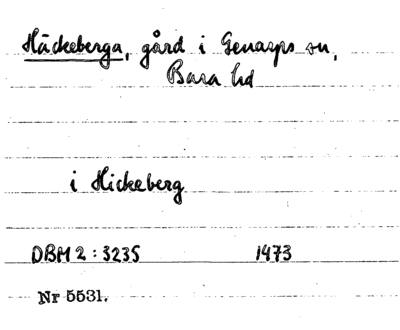 Häckeberga, gård i Genarps sn,
Bara hd
i Hickeberg
DBM 2:3235 1473
Nr 5531.